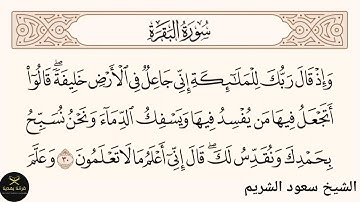 سُورَةُ البَقَرَةِ
وَإِذْ قَالَ رَبُّكَ لِلْمَلَٰٓئِكَةِ إِنِّي جَاعِلٌ فِي ٱلْأَرْضِ خَلِيفَةً ۖ قَالُوٓا۟
أَتَجْعَلُ فِيهَا مَن يُفْسِدُ فِيهَا وَيَسْفِكُ ٱلدِّمَآءَ وَنَحْنُ نُسَبِّحُ
بِحَمْدِكَ وَنُقَدِّسُ لَكَ ۖ قَالَ إِنِّيٓ أَعْلَمُ مَا لَا تَعْلَمُونَ ٣٠ وَعَلَّمَ
الشيخ سعود الشريم